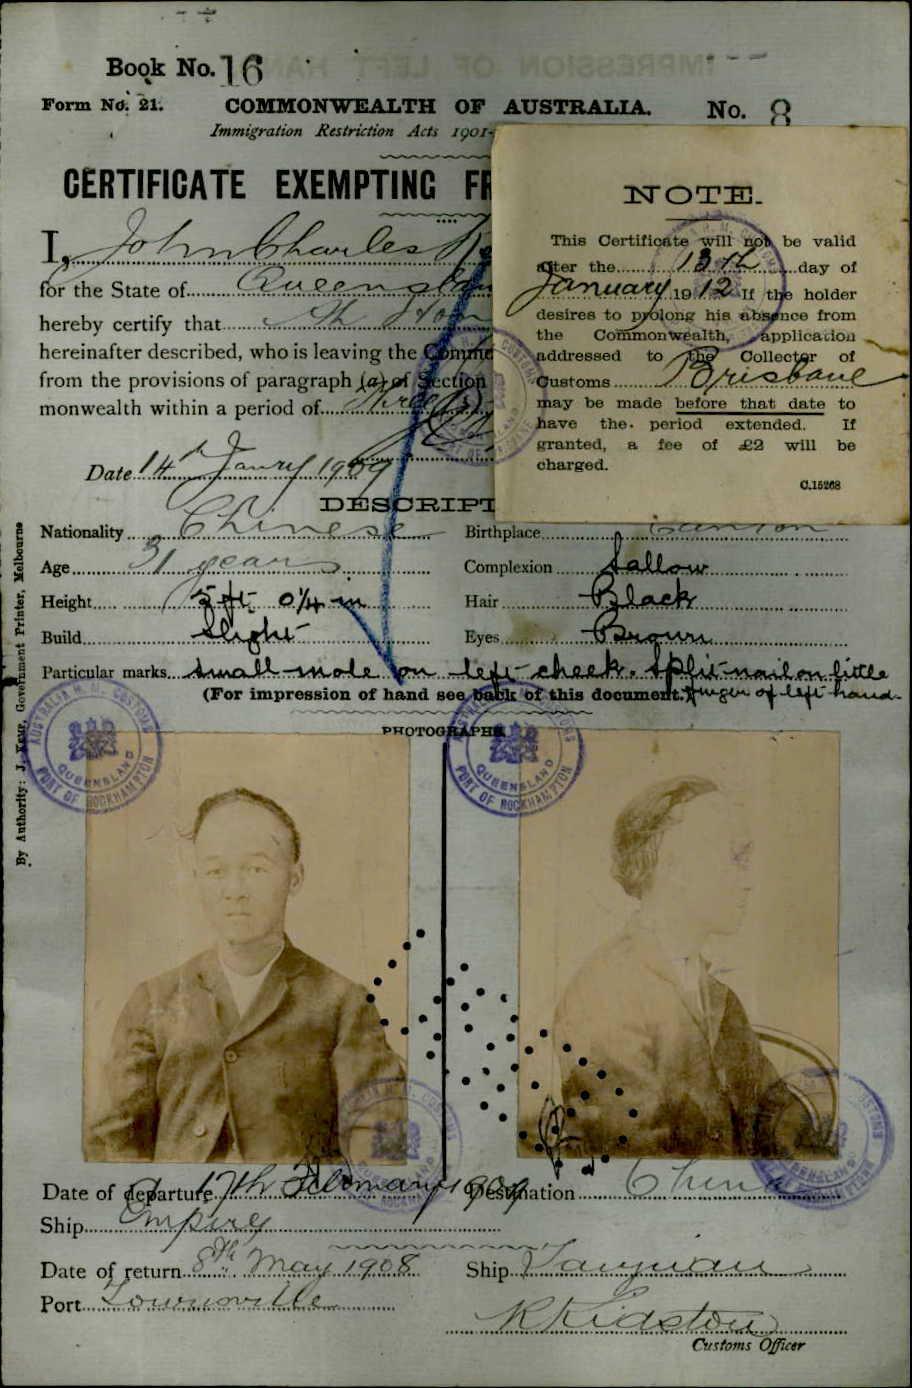 IMPRESSION OF LEFT HAN
Book No. 16
Form No. 21. COMMONWEALTH OF AUSTRALIA. No. 8
Immigration Restriction Acts 1901-
CERTIFICATE EXEMPTING FR
I, John Charles
for the State of Queensla
hereby certify that Ah
hereinafter described, who is leaving the Commo
from the provisions of paragraph (a) of Section
monwealth within a period of three
Date 14th Janry 1909
NOTE.
This Certificate will not be valid
after the 13th day of
January 1912 If the holder
desires to prolong his absence from
the Commonwealth, application
addressed to the Collector of
Customs Brisbane
may be made before that date to
have the period extended. If
granted, a fee of £2 will be
charged.
C.15268
DESCRIPT
Nationality Chinese Birthplace Canton
Age 31 years Complexion Sallow
Height 5 ft 0¼ in Hair Black
Build Slight Eyes Brown
Particular marks small mole on left cheek. Split nail on little
finger of left hand.
(For impression of hand see back of this document.)
PHOTOGRAPHS
AUSTRALIA H. M. CUSTOMS
QUEENSLAND
PORT OF ROCKHAMPTON
AUSTRALIA H. M. CUSTOMS
QUEENSLAND
PORT OF ROCKHAMPTON
By Authority: J. Kemp, Government Printer, Melbourne
Date of departure 17th February 1909 Destination China
Ship Empire
Date of return 8th May 1908 Ship Taiyuan
Port Townsville
R Kidston
Customs Officer